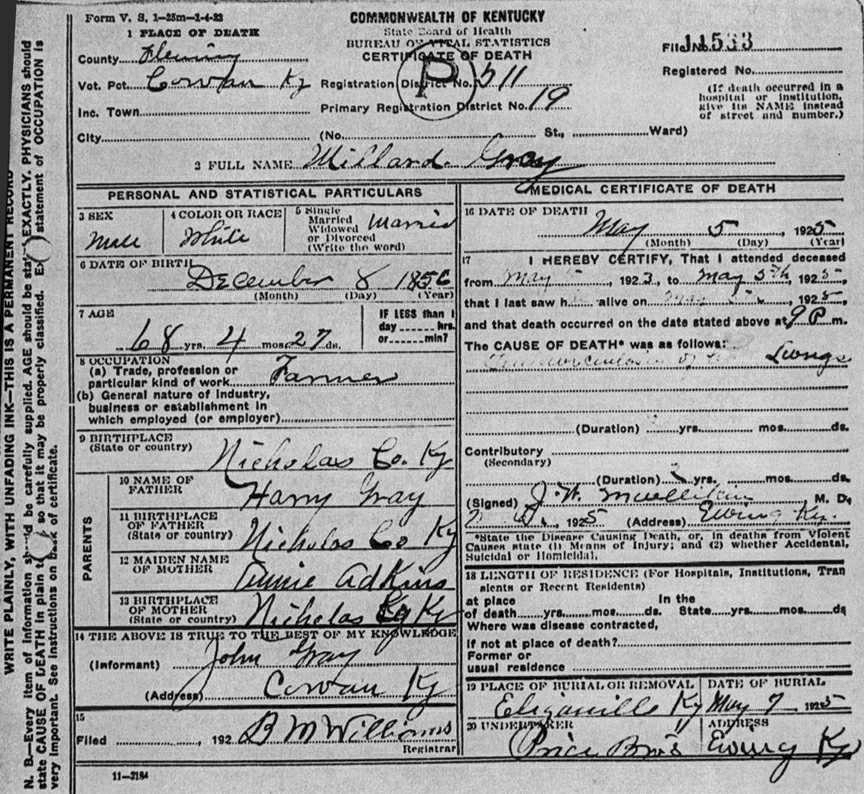 Form V. S. 1-25m-1-4-22
COMMONWEALTH OF KENTUCKY
State Board of Health
BUREAU OF VITAL STATISTICS
CERTIFICATE OF DEATH
1 PLACE OF DEATH
County Fleming
Vot. Pct. Cowan Ky
Inc. Town
City
P
Registration District No. 511
Primary Registration District No. 19
(No. St., Ward)
File No. 11533
Registered No.
(If death occurred in a
hospital or institution,
give its NAME instead
of street and number.)
2 FULL NAME Millard Gray
PERSONAL AND STATISTICAL PARTICULARS
3 SEX
Male
4 COLOR OR RACE
White
5 Single
Married
Widowed
or Divorced
(Write the word)
Married
6 DATE OF BIRTH
December 8 1856
(Month) (Day) (Year)
7 AGE
68 yrs. 4 mos. 27 ds.
IF LESS than 1
day hrs.
or min?
8 OCCUPATION
(a) Trade, profession or
particular kind of work Farmer
(b) General nature of industry,
business or establishment in
which employed (or employer)
9 BIRTHPLACE
(State or country) Nicholas Co. Ky
PARENTS
10 NAME OF
FATHER Harry Gray
11 BIRTHPLACE
OF FATHER
(State or country) Nicholas Co Ky
12 MAIDEN NAME
OF MOTHER Annie Adkins
13 BIRTHPLACE
OF MOTHER
(State or country) Nicholas Ky
14 THE ABOVE IS TRUE TO THE BEST OF MY KNOWLEDGE
(Informant) John Gray
(Address) Cowan Ky
15
Filed , 192 B M Williams
Registrar
11-2184
MEDICAL CERTIFICATE OF DEATH
16 DATE OF DEATH
May 5, 1925
(Month) (Day) (Year)
17 I HEREBY CERTIFY, That I attended deceased
from May , 1923, to May 5th, 1925,
that I last saw h alive on , 1925,
and that death occurred on the date stated above at 9 P m.
The CAUSE OF DEATH* was as follows:
Tuberculosis of Lungs
(Duration) yrs. mos. ds.
Contributory
(Secondary)
(Duration) 2 yrs. mos. ds.
(Signed) J. W. M. D.
, 1925 (Address) Ewing Ky.
*State the Disease Causing Death, or, in deaths from Violent
Causes state (1) Means of Injury; and (2) whether Accidental,
Suicidal or Homicidal.
18 LENGTH OF RESIDENCE (For Hospitals, Institutions, Tran
sients or Recent Residents)
at place In the
of death yrs. mos. ds. State yrs. mos. ds
Where was disease contracted,
if not at place of death?
Former or
usual residence
19 PLACE OF BURIAL OR REMOVAL
Elizaville Ky
DATE OF BURIAL
May 7 1925
20 UNDERTAKER
Price Bro's
ADDRESS
Ewing Ky
WRITE PLAINLY, WITH UNFADING INK—THIS IS A PERMANENT RECORD
N. B.—Every item of information should be carefully supplied. AGE should be stated EXACTLY. PHYSICIANS should
state CAUSE OF DEATH in plain so that it may be properly classified. statement of OCCUPATION is
very important. See instructions on back of certificate.